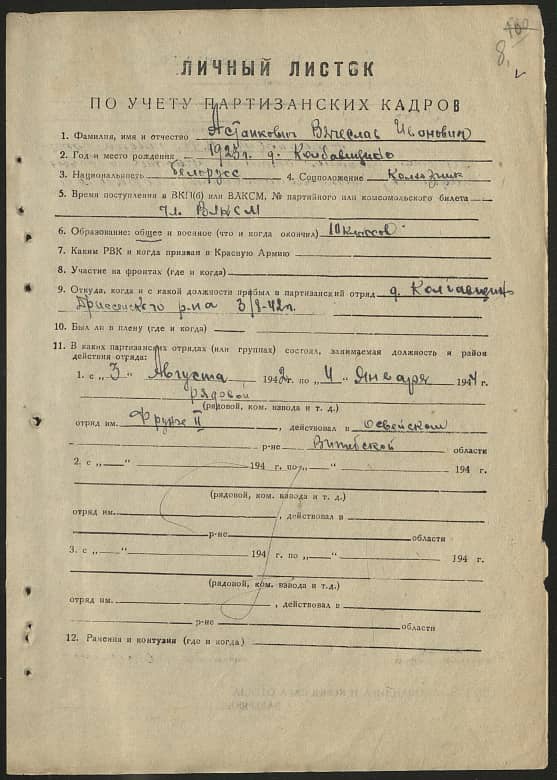 100
8.
ЛИЧНЫЙ ЛИСТОК
ПО УЧЕТУ ПАРТИЗАНСКИХ КАДРОВ
1. Фамилия, имя и отчество Астапкович Вячеслав Иванович
2. Год и место рождения 1925 г. д.
3. Национальность белорусс 4. Соцположение Колхозник
5. Время поступления в ВКП(б) или ВЛКСМ, № партийного или комсомольского билета
чл. ВЛКСМ
6. Образование: общее и военное (что и когда окончил) 10 классов
7. Каким РВК и когда призван в Красную Армию
8. Участие на фронтах (где и когда)
9. Откуда, когда и с какой должности прибыл в партизанский отряд д.
р-на 42 г.
10. Был ли в плену (где и когда)
11. В каких партизанских отрядах (или группах) состоял, занимаемая должность и район
действия отряда:
1. с „3" Августа 1942 г. по „4" Января 1944 г.
рядовой
(рядовой, ком. взвода и т. д.)
отряд им. Фрунзе II, действовал в Освейском
р-не Витебской области
2. с „ " 194 г. по „ " 194 г.
(рядовой, ком. взвода и т. д.)
отряд им. , действовал в
р-не области
3. с „ " 194 г. по „ " 194 г.
(рядовой, ком. взвода и т.д.)
отряд им. , действовал в
р-не области
12. Ранения и контузия (где и когда)